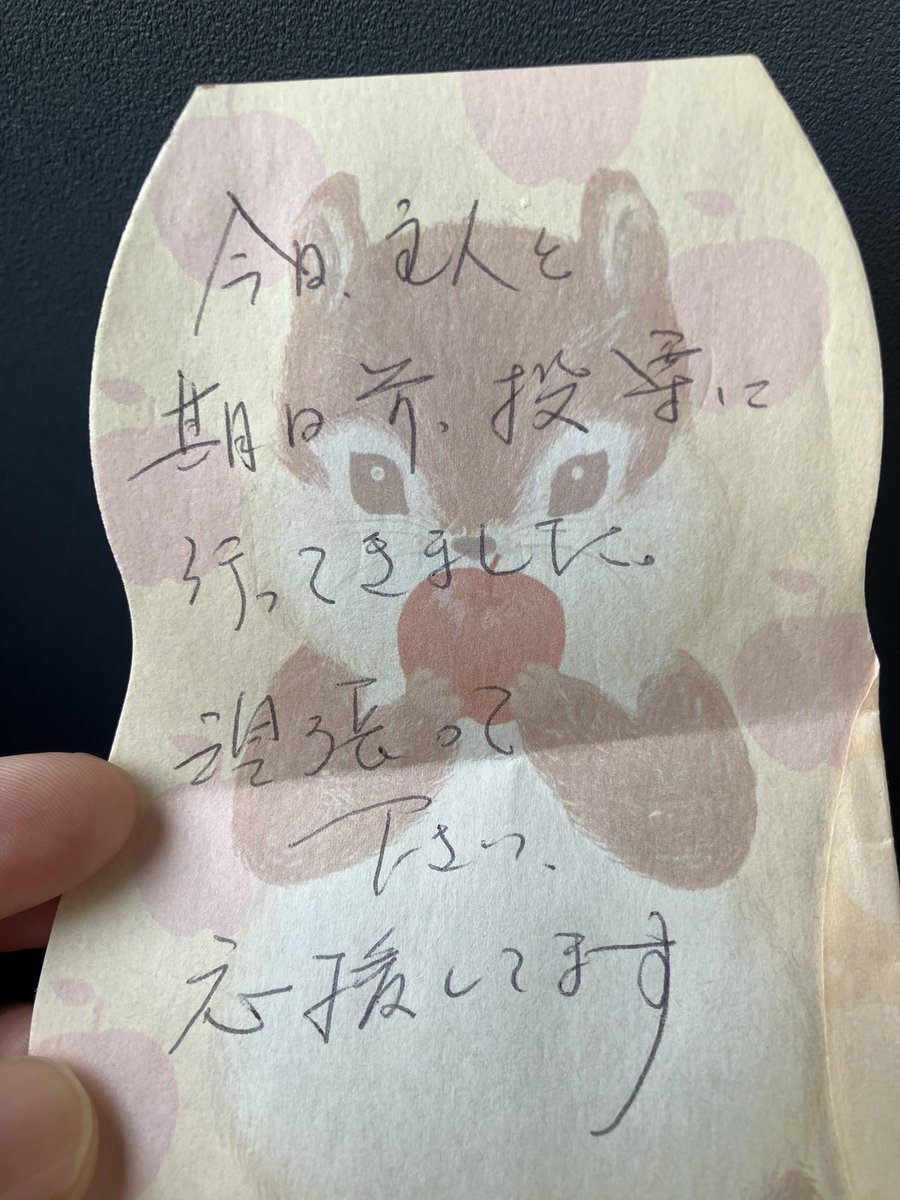 今日、主人と
期日前、投票に
行ってきました。
頑張って
下さい、
応援してます